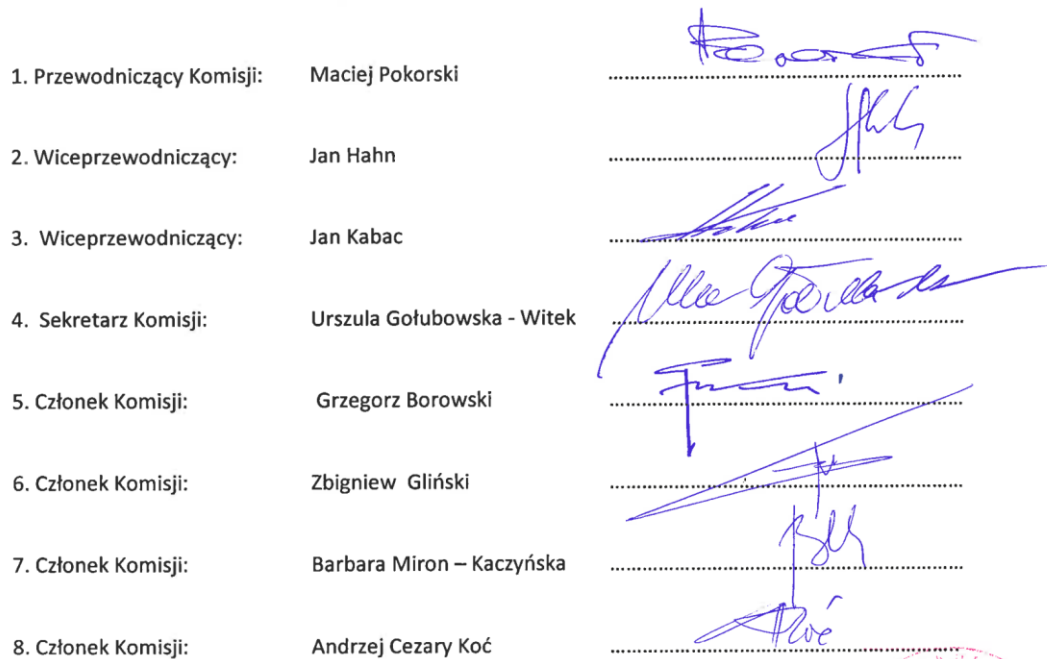 1. Przewodniczący Komisji: Maciej Pokorski
2. Wiceprzewodniczący: Jan Hahn
3. Wiceprzewodniczący: Jan Kabac
4. Sekretarz Komisji: Urszula Gołubowska - Witek
5. Członek Komisji: Grzegorz Borowski
6. Członek Komisji: Zbigniew Gliński
7. Członek Komisji: Barbara Miron – Kaczyńska
8. Członek Komisji: Andrzej Cezary Koć